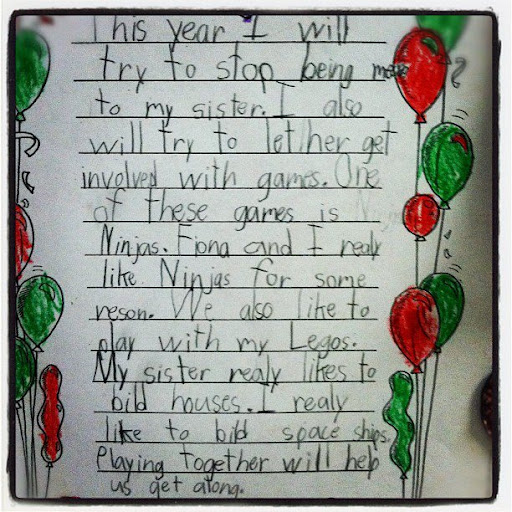 This year I will
try to stop being mene
to my sister. I also
will try to let her get
involved with games. One
of these games is
Ninjas. Fiona and I realy
like Ninjas for some
reson. We also like to
play with my Legos.
My sister realy likes to
bild houses. I realy
like to bild space ships.
Playing together will help
us get along.